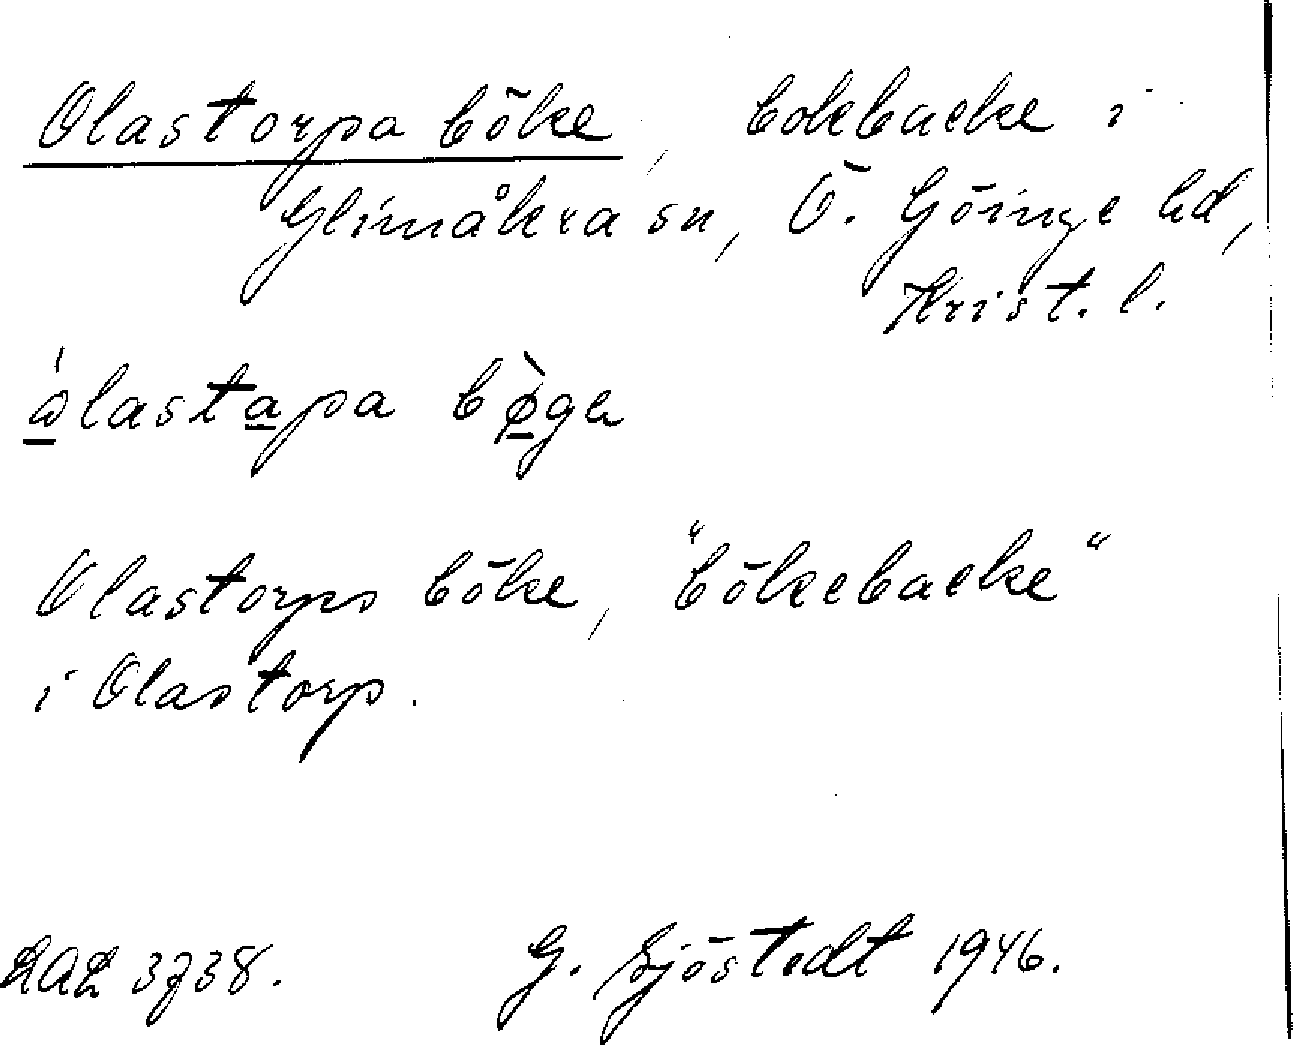 Olastorpa böke, bokbacke i
Glimåkra sn, Ö. Göinge hd,
Krist. l.
ώ̲lasta̲pa bø̲̀gə
Olastorps böke, "bökebacke"
i Olastorp.
LAL 3738. G. Sjöstedt 1946.